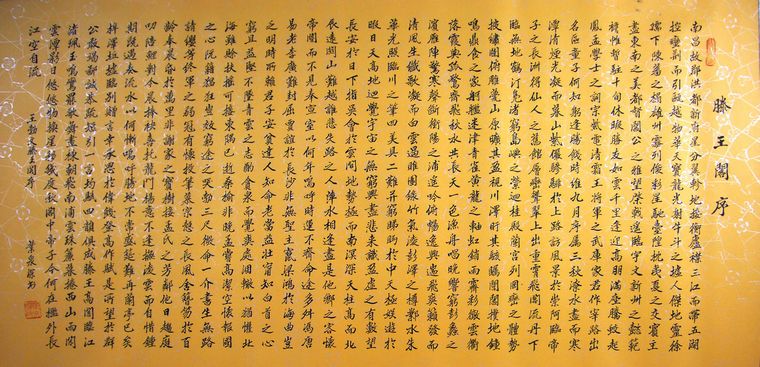 滕王閣序
南昌故郡洪都新府星分翼軫地接衡廬襟三江而帶五湖
控蠻荊而引甌越物華天寶龍光射牛斗之墟人傑地靈徐
孺下陳蕃之榻雄州霧列俊彩星馳臺隍枕夷夏之交賓主
盡東南之美都督閻公之雅望棨戟遙臨宇文新州之懿範
襜帷暫駐十旬休暇勝友如雲千里逢迎高朋滿座騰蛟起
鳳孟學士之詞宗紫電清霜王將軍之武庫家君作宰路出
名區童子何知躬逢勝餞時維九月序屬三秋潦水盡而寒
潭清煙光凝而暮山紫儼驂騑於上路訪風景於崇阿臨帝
子之長洲得仙人之舊館層巒聳翠上出重霄飛閣流丹下
臨無地鶴汀鳧渚窮島嶼之縈迴桂殿蘭宮列岡巒之體勢
披繡闥俯雕甍山原曠其盈視川澤盱其駭矚閭閻撲地鐘
鳴鼎食之家舸艦迷津青雀黃龍之軸虹銷雨霽彩徹雲衢
落霞與孤鶩齊飛秋水共長天一色漁舟唱晚響窮彭蠡之
濱雁陣驚寒聲斷衡陽之浦遙吟俯暢逸興遄飛爽籟發而
清風生纖歌凝而白雲遏睢園綠竹氣凌彭澤之樽鄴水朱
華光照臨川之筆四美具二難并窮睇眄於中天極娛遊於
暇日天高地迥覺宇宙之無窮興盡悲來識盈虛之有數望
長安於日下指吳會於雲間地勢極而南溟深天柱高而北
辰遠關山難越誰悲失路之人萍水相逢盡是他鄉之客懷
帝閽而不見奉宣室以何年嗚呼時運不齊命途多舛馮唐
易老李廣難封屈賈誼於長沙非無聖主竄梁鴻於海曲豈
乏明時所賴君子安貧達人知命老當益壯寧知白首之心
窮且益堅不墜青雲之志酌貪泉而覺爽處涸轍以猶懽北
海雖賒扶搖可接東隅已逝桑榆非晚孟嘗高潔空懷報國
之心阮籍猖狂豈效窮途之哭勃三尺微命一介書生無路
請纓等終軍之弱冠有懷投筆慕宗愨之長風舍簪笏於百
齡奉晨昏於萬里非謝家之寶樹接孟氏之芳鄰他日趨庭
叨陪鯉對今晨捧袂喜托龍門楊意不逢撫凌雲而自惜鍾
期既遇奏流水以何慚嗚呼勝地不常盛筵難再蘭亭已矣
梓澤坵墟臨別贈言幸承恩於偉餞登高作賦是所望於群
公敢竭鄙誠恭疏短引一言均賦四韻俱成滕王高閣臨江
渚珮玉鳴鸞罷歌舞畫棟朝飛南浦雲珠簾暮捲西山雨閒
雲潭影日悠悠物換星移幾度秋閣中帝子今何在檻外長
江空自流
王勃文滕王閣序